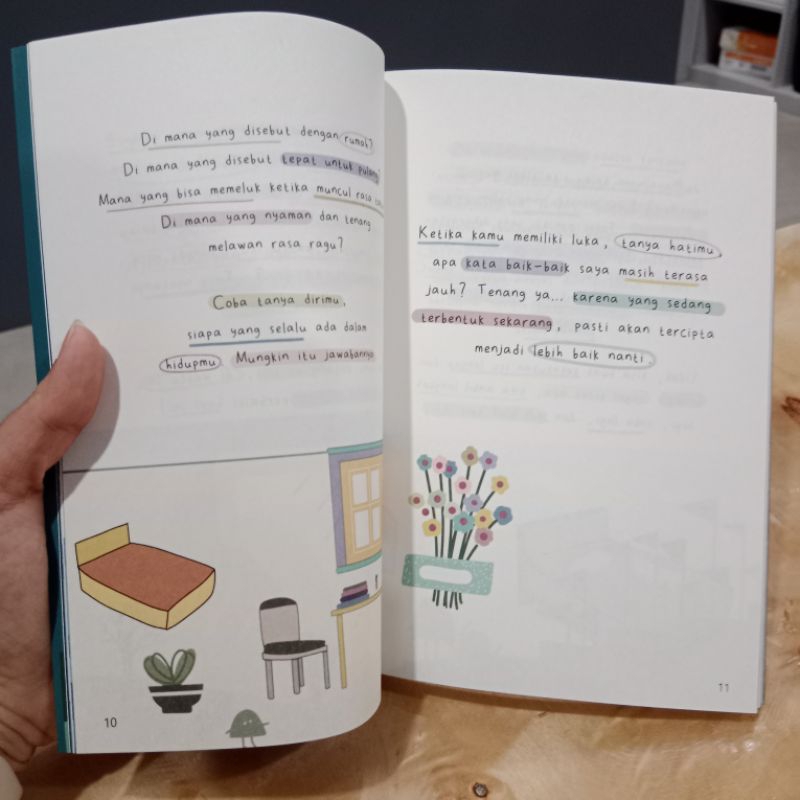 Di mana yang disebut dengan rumah?
Di mana yang disebut tepat untuk pulang?
Mana yang bisa memeluk ketika muncul rasa
Di mana yang nyaman dan tenang
melawan rasa ragu?
Coba tanya dirimu,
siapa yang selalu ada dalam
hidupmu. Mungkin itu jawabannya
10
Ketika kamu memiliki luka, tanya hatimu,
apa kata baik-baik saya masih terasa
jauh? Tenang ya... karena yang sedang
terbentuk sekarang, pasti akan tercipta
menjadi lebih baik nanti.
11